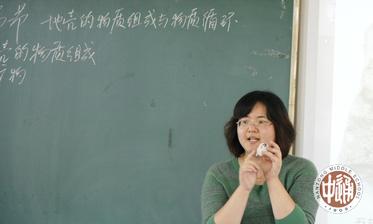 节 地壳的物质组成与物质循环
壳的物质组成
矿物
NANTONG MIDDLE SCHOOL